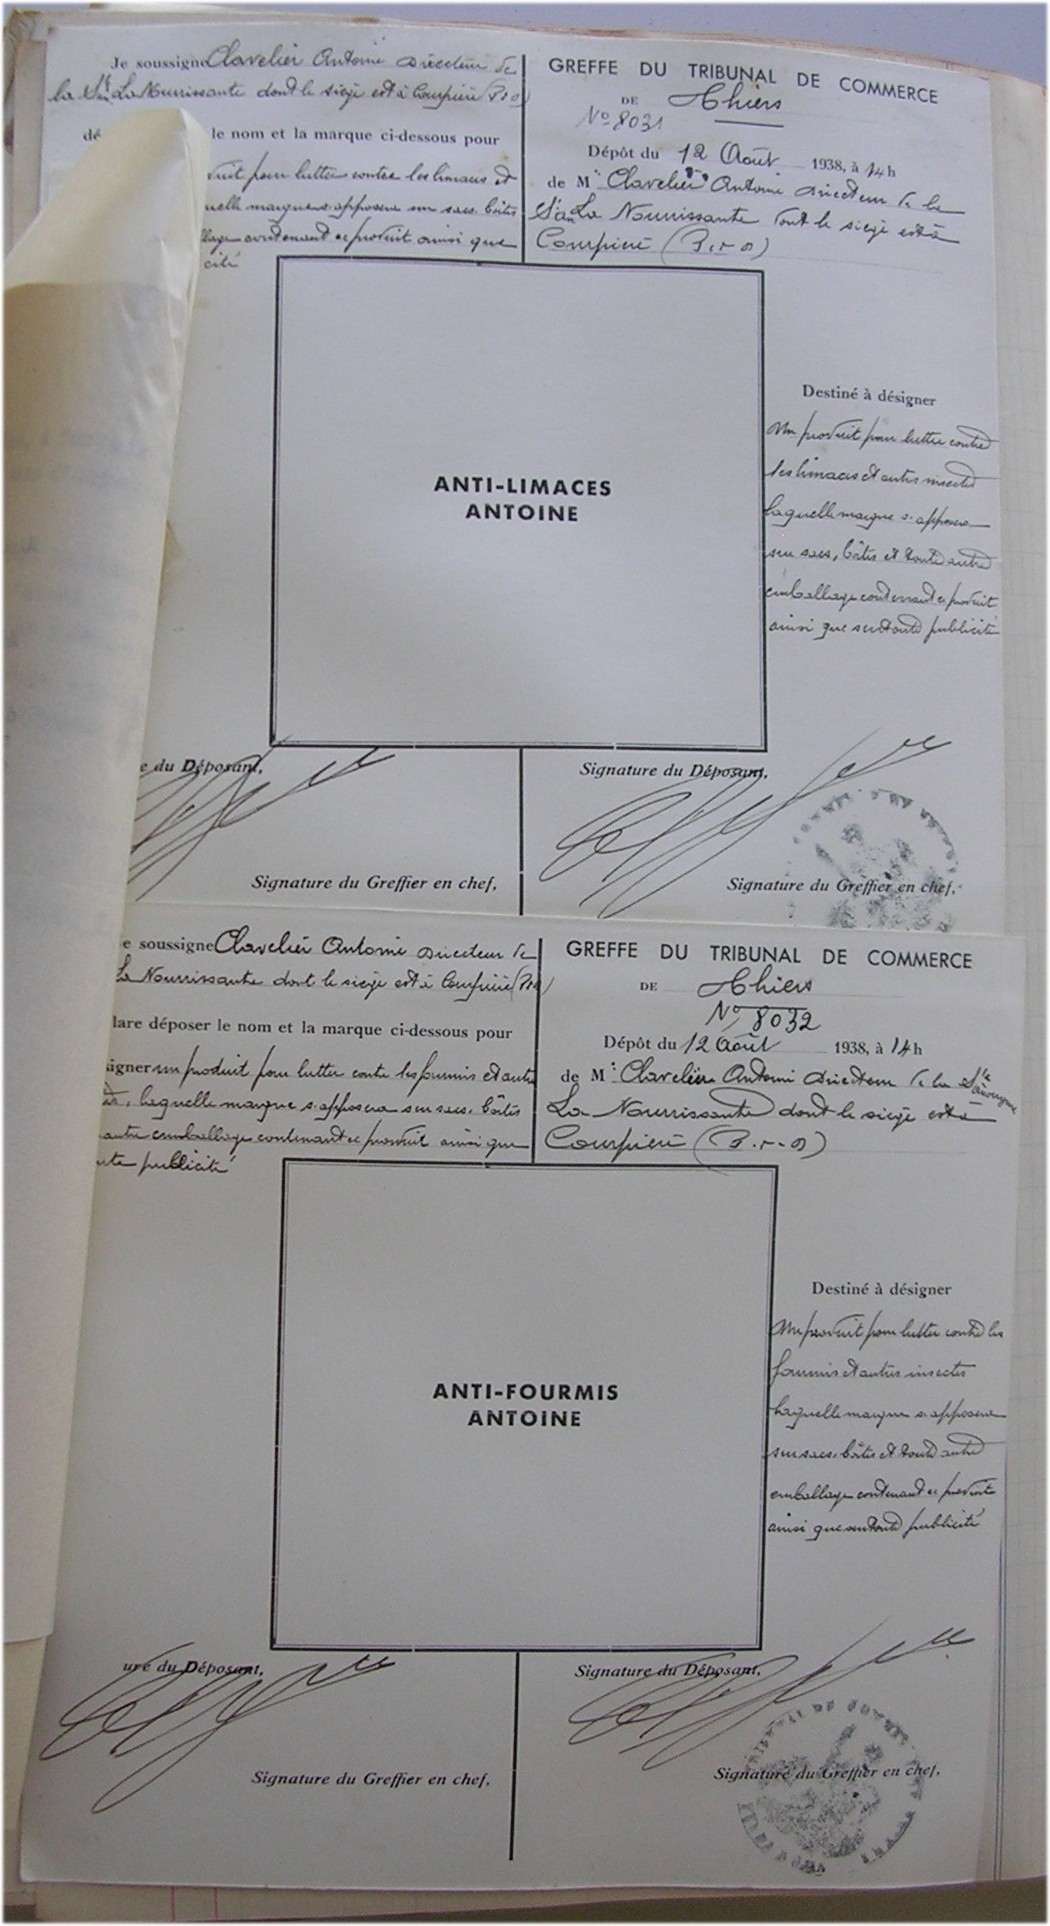 Je soussigné Clavelier Antoine Directeur de
la Sté La Nourrissante dont le siège est à Courpière (P.d.D)
dé le nom et la marque ci-dessous pour
uit pour lutter contre les limaces et
uelle marque s'apposera sur sacs, boîtes
llage contenant ce produit ainsi que
cité
GREFFE DU TRIBUNAL DE COMMERCE
DE Thiers
No 8031
Dépôt du 12 Août 1938, à 14 h
de Mr Clavelier Antoine Directeur de la
La Nourrissante dont le siège est à
Courpière (P.-d-D)
ANTI-LIMACES
ANTOINE
Destiné à désigner
Un produit pour lutter contre
les limaces et autres insectes
laquelle marque s'apposera
sur sacs, boîtes et toute autre
emballage contenant ce produit
ainsi que sur toute publicité
e du Déposant,
Signature du Greffier en chef,
Signature du Déposant,
Signature du Greffier en chef,
e soussigné Clavelier Antoine Directeur de
La Nourrissante dont le siège est à Courpière (P.d.D)
lare déposer le nom et la marque ci-dessous pour
signer un produit pour lutter contre les fourmis et autre
laquelle marque s'apposera sur sacs, boîtes
autre emballage contenant ce produit ainsi que
ute publicité
GREFFE DU TRIBUNAL DE COMMERCE
DE Thiers
No 8032
Dépôt du 12 Août 1938, à 14 h
de Mr Clavelier Antoine Directeur de la Sté
La Nourrissante dont le siège est à
Courpière (P.-d-D)
ANTI-FOURMIS
ANTOINE
Destiné à désigner
Un produit pour lutter contre les
fourmis et autres insectes
laquelle marque s'apposera
sur sacs, boîtes et toute autre
emballage contenant ce produit
ainsi que sur toute publicité
ure du Déposant,
Signature du Greffier en chef,
Signature du Déposant,
Signature du Greffier en chef,